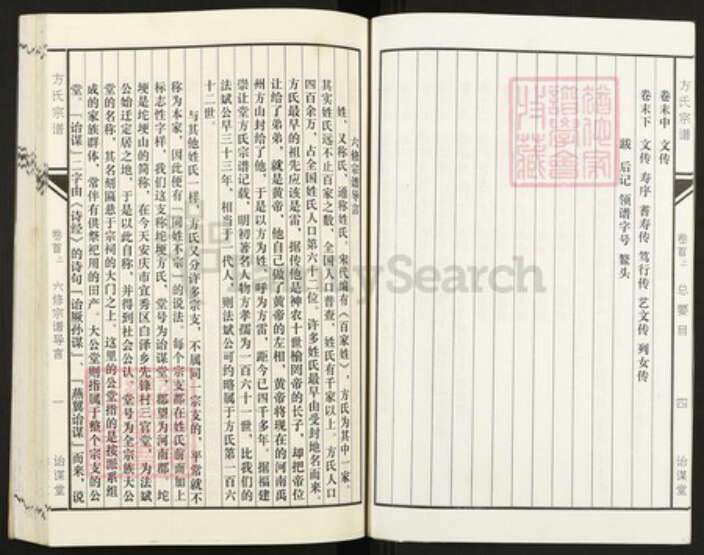 方氏宗谱 卷首上 总要目 四 诒谋堂
卷末中 文传
卷末下 文传 寿序 耆寿传 笃行传 艺文传 列女传
跋 后记 领谱字号 鳌头
猶他家
譜學會
六修宗谱导言
姓，又称氏，通称姓氏。宋代编有《百家姓》，方氏为其中一家。
其实姓氏远不止百家之数，全国人口普查，姓氏有千家以上。方氏人口
四百余万，占全国姓氏人口第六十二位。许多姓氏最早由受封地名而来。
方氏最早的祖先应该是雷，据传他是神农十世榆罔帝的长子，却把帝位
让给了弟弟，就是黄帝，他自己做了黄帝的左相，黄帝将现在的河南禹
州方山封给了他，于是以方为姓，呼为方雷，距今已四千多年。据福建
崇让堂方氏宗谱记载，明初著名人物方孝孺为一百六十一世，比我们的
法斌公早三十三年，相当于一代人，则法斌公可约略属于方氏第一百六
十二世。
与其他姓氏一样，方氏又分许多宗支，不属同一宗支的，平常就不
称为本家，因此便有《同姓不宗》的说法。每个宗支都在姓氏前面加上
标志性字样，我们这支称坨埂方氏，堂号为诒谋堂，郡望为河南郡。坨
埂是坨埂山的简称，在今天安庆市宜秀区白泽乡先锋村三官堂，为法斌
公始迁定居之地，于是以此自称，并得到社会公认。堂号为全宗族大公
堂的名称，其名刻匾悬于宗祠的大门之上。这里的公堂指的是按派系组
成的家族群体，常伴有供祭祀用的田产。大公堂则指属于整个宗支的公
堂。「诒谋」二字由《诗经》的诗句「诒厥孙谋」、「燕翼诒谋」而来，说
方氏宗谱 卷首上 六修宗谱导言 一 诒谋堂
FamilySearch